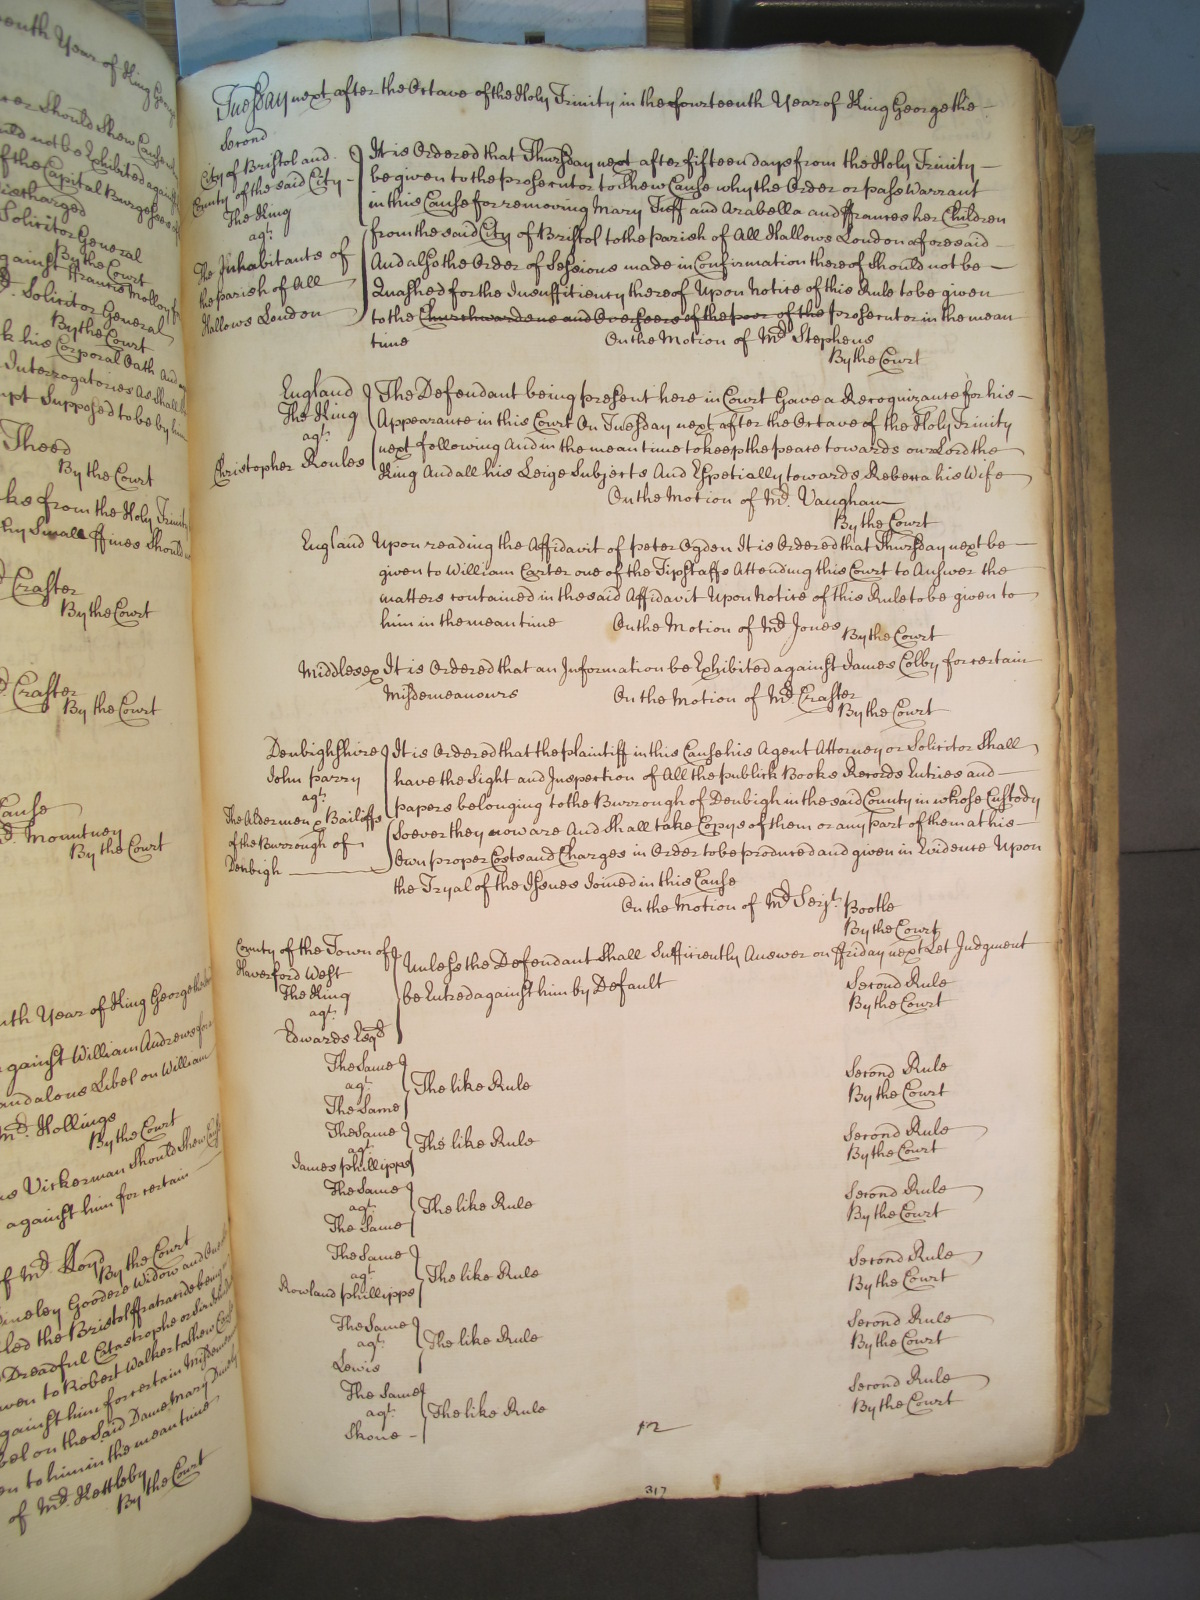 outh Year of King George
should Shew Cause
uld not be Exhibited against
f the Capital Burgesses of
discharged
Solicitor General
By the Court
gainst Francis Molloy
Solicitor General
By the Court
k his Corporal Oath And
Interrogatories As Shall
mpt Supposed to be by him
Theed
By the Court
ks from the Holy Trinity
why Small ffines Should
Crafter
By the Court
Crafter
By the Court
Cause
Mountney
By the Court
nth Year of King George the
against William Andrews for
andalous Libel on William
Mr. Hollings
By the Court
Vickerman Should Shew Cause
against him for certain
of Mr. Lloyd
By the Court
Dineley Goodere Widow and
led the Bristol ffratricide being
Dreadful Catastrophe of Sir
given to Robert Walker to Shew Cause
against him for certain Misdemeanours
bel on the Said Dame Mary Dinely
en to him in the mean time
of Mr. Kettleby
By the Court
Tuesday next after the Octave of the Holy Trinity in the fourteenth Year of King George the
Second
City of Bristol and
County of the said City
The King
agt.
The Inhabitants of
the parish of All
Hallows London
It is Ordered that Thursday next after fifteen days from the Holy Trinity
be given to the prosecutor to Shew Cause why the Order or pass Warrant
in this Cause for removing Mary Tuff and Arabella and ffrances her Children
from the said City of Bristol to the parish of All Hallows London aforesaid
And also the Order of Sessions made in Confirmation thereof Should not be
Quashed for the Insufficiency thereof Upon Notice of this Rule to be given
to the Churchwardens and Overseers of the poor of the prosecutor in the mean
time On the Motion of Mr. Stephens
By the Court
England
The King
agt.
Christopher Roules
The Defendant being present here in Court Gave a Recognizance for his
Appearance in this Court On Tuesday next after the Octave of the Holy Trinity
next following And in the mean time to keep the peace towards our Lord the
King And all his Leige Subjects And Espetially towards Rebecca his Wife
On the Motion of Mr. Vaugham
By the Court
England Upon reading the Affidavit of Peter Ogden It is Ordered that Thursday next be
given to William Carter one of the Tipstaffs Attending this Court to Answer the
matters contained in the said Affidavit Upon notice of this Rule to be given to
him in the mean time On the Motion of Mr. Jones
By the Court
Middlesex It is Ordered that an Information be Exhibited against James Colby for certain
Misdemeanours On the Motion of Mr. Crafter
By the Court
Denbighshire
John Parry
agt.
The Aldermen & Bailiffs
of the Burrough of
Denbigh
It is Ordered that the plaintiff in this Cause his Agent Attorney or Solicitor Shall
have the Sight and Inspection of All the publick Books Records Entries and
papers belonging to the Burrough of Denbigh in the said County in whose Custody
Soever they now are And Shall take Copys of them or any part of them at his
Own proper Costs and Charges in Order to be produced and given in Evidence Upon
the Tryal of the Issues Joined in this Cause
On the Motion of Mr. Serjt. Bootle
By the Court
County of the Town of
Haverford West
The King
agt.
Edwards Esqr.
Unless the Defendant Shall Sufficiently Answer on ffriday next Let Judgment
be Entred against him by Default Second Rule
By the Court
The Same
agt.
The Same
The like Rule
Second Rule
By the Court
The Same
agt.
James Phillipps
The like Rule
Second Rule
By the Court
The Same
agt.
The Same
The like Rule
Second Rule
By the Court
The Same
agt.
Rowland Phillipps
The like Rule
Second Rule
By the Court
The Same
agt.
Lewis
The like Rule
Second Rule
By the Court
The Same
agt.
Skone
The like Rule
Second Rule
By the Court
317